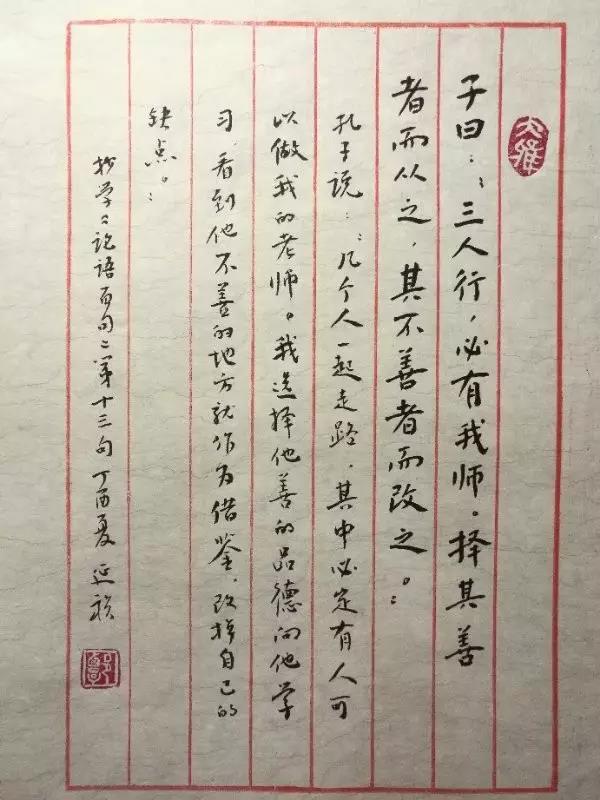 大雅
子曰：“三人行，必有我师。择其善
者而从之，其不善者而改之。”
孔子说：“几个人一起走路，其中必定有人可
以做我的老师。我选择他善的品德向他学
习，看到他不善的地方就作为借鉴，改掉自己的
缺点。”
抄学“论语百句”第十三句 丁酉夏 延